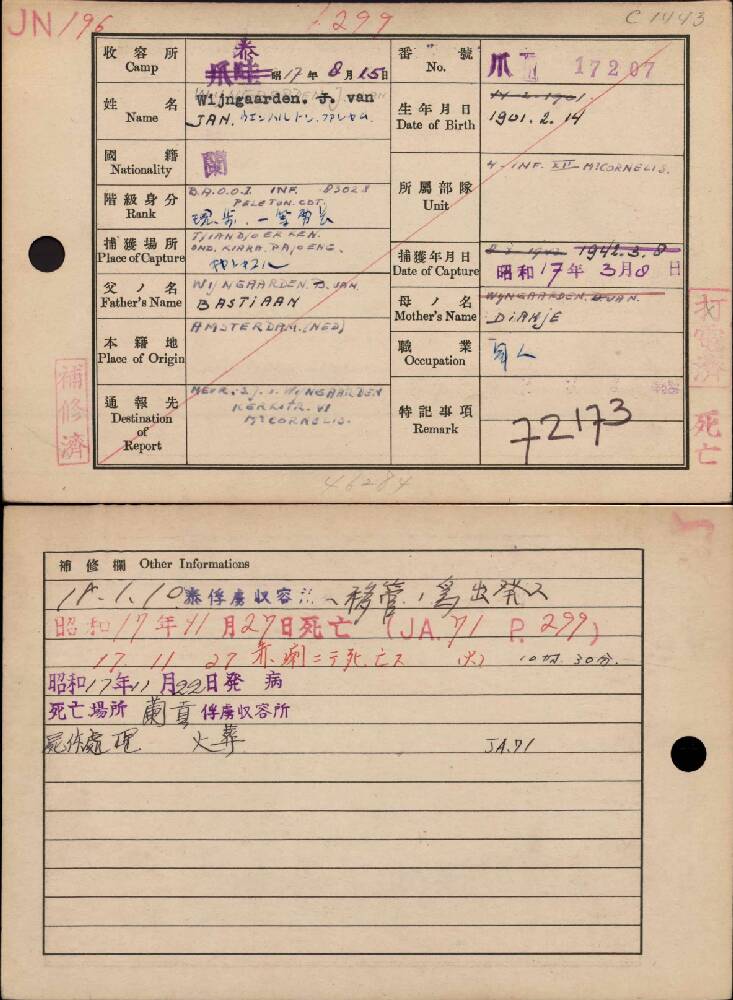 JN/196
299
C 1443
收容所 Camp
泰
爪哇 昭17年8月15日
番號 No.
爪 17207
姓名 Name
Wijngaarden. J. van
JAN.
生年月日 Date of Birth
14-2-1901
1901.2.14
國籍 Nationality
蘭
階級身分 Rank
INF. 83028
PELETON. CDT.
所屬部隊 Unit
4-INF. XII M:CORNELIS.
捕獲場所 Place of Capture
TJIANDJOER KEN.
OND. KIARA. PAJOENG.
捕獲年月日 Date of Capture
8-3-1942 1942.3.8
昭和17年3月8日
父ノ名 Father's Name
WIJNGAARDEN. B. VAN
BASTIAAN
母ノ名 Mother's Name
WIJNGAARDEN. VAN.
DIANJE
本籍地 Place of Origin
AMSTERDAM. (NED)
職業 Occupation
軍人
通報先 Destination of Report
MEVR. S.J. V. WIJNGAARDEN
KERKSTR. VI
M:CORNELIS.
特記事項 Remark
72173
補修濟
打電濟 死亡
46284
補修欄 Other Informations
18.1.10 泰俘虜収容所へ移管ノ為出発ス
昭和17年11月27日死亡 (JA.71 P.299)
17.11.27 赤痢ニテ死亡ス 10時30分.
昭和17年11月22日発病
死亡場所 蘭貢俘虜収容所
屍体處理 火葬 JA.71